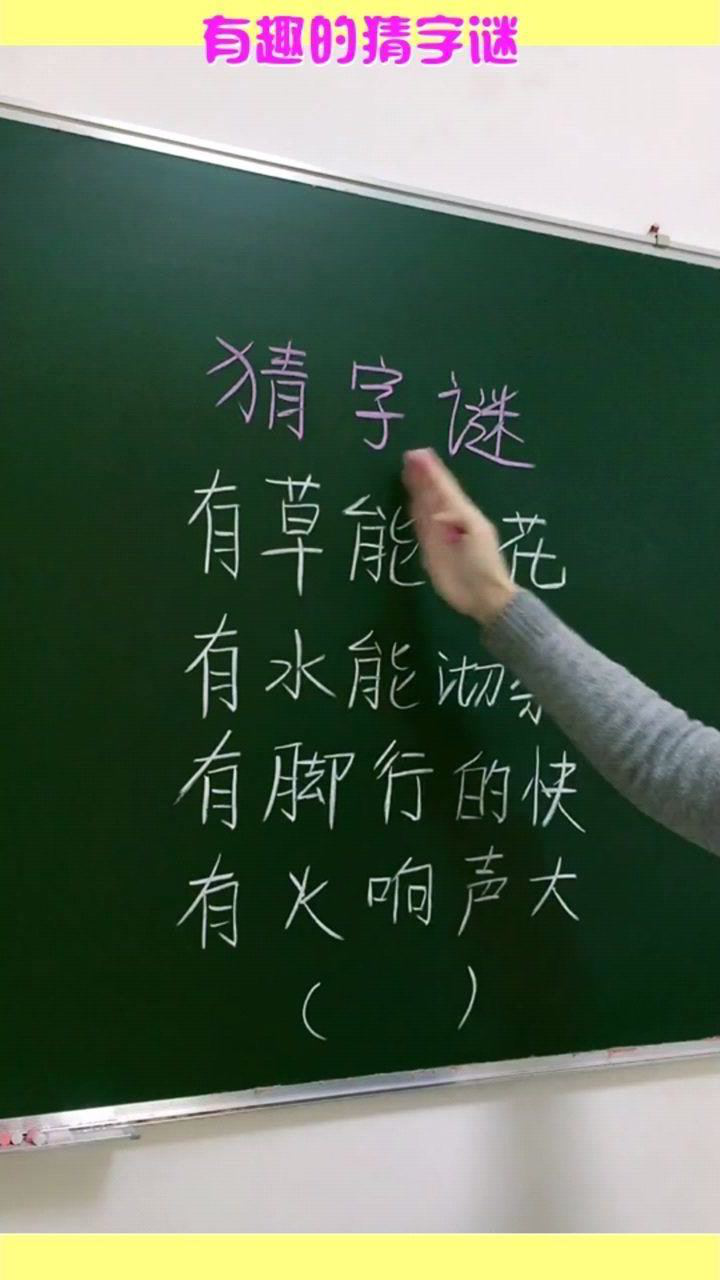 有趣的猜字谜
猜字谜
有草能花
有水能沏
有脚行的快
有火响声大
( )